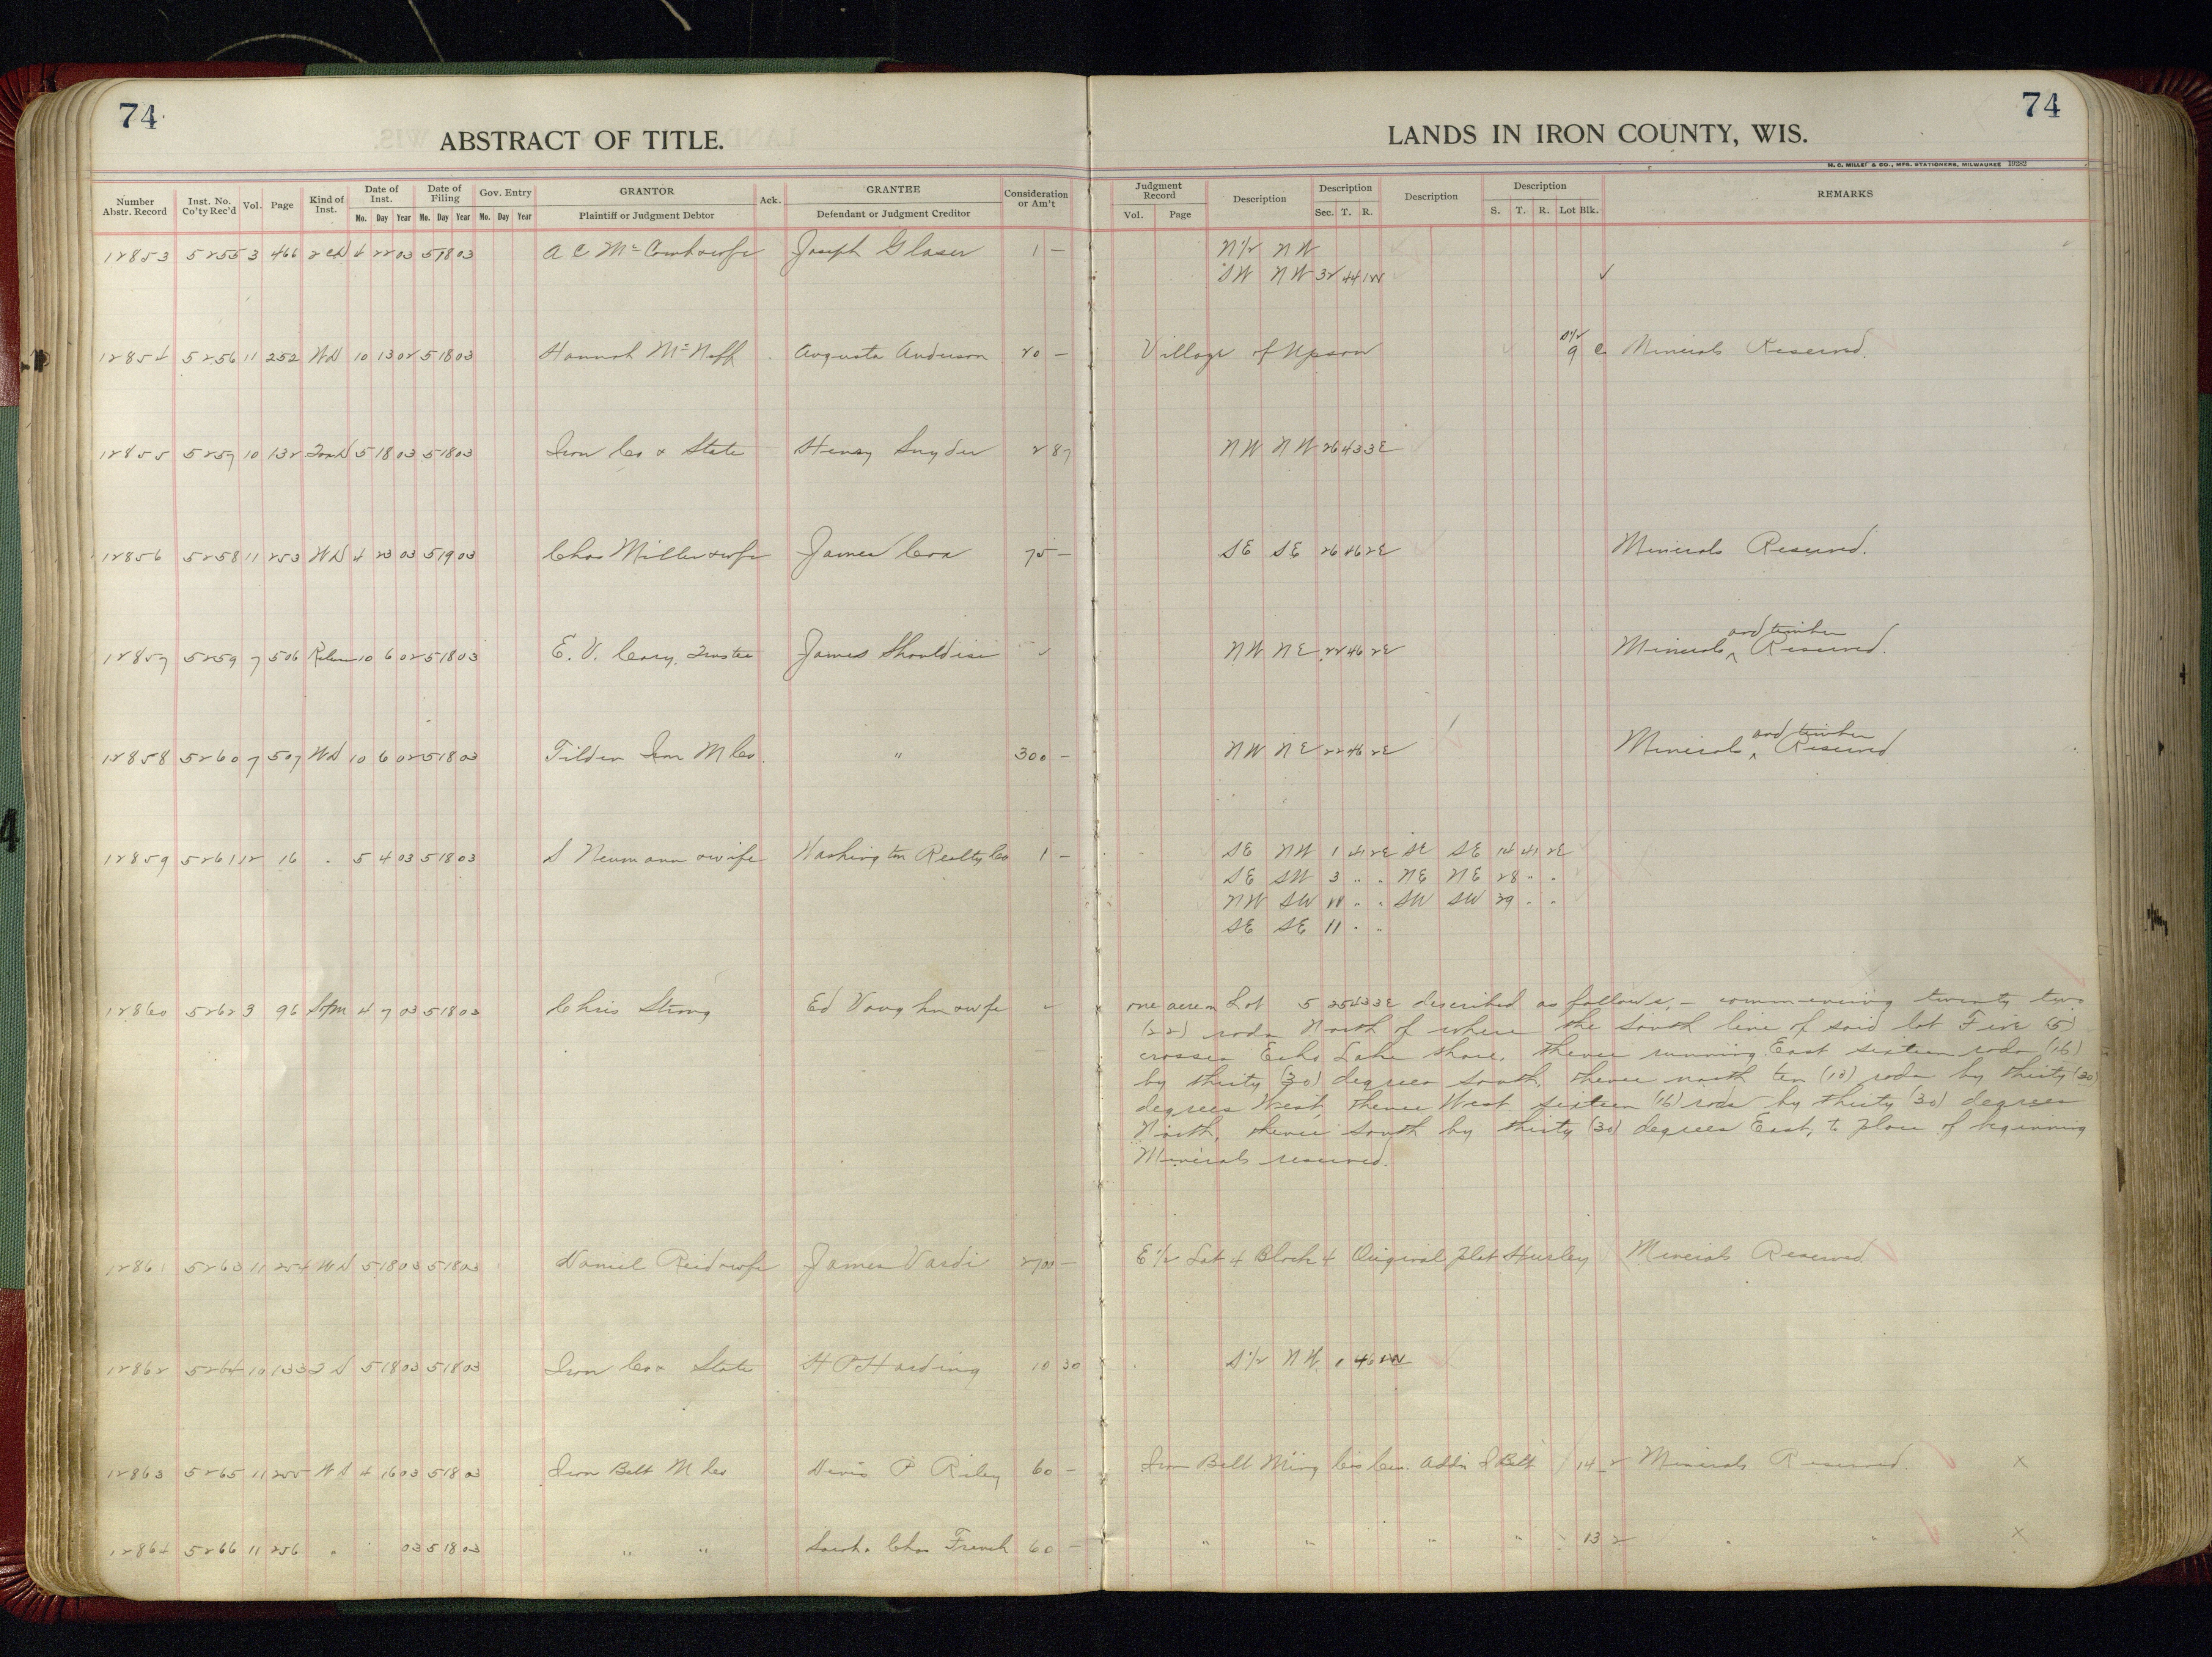 74
ABSTRACT OF TITLE.
Number Abstr. Record Inst. No. Co'ty Rec'd Vol. Page Kind of Inst. Date of Inst. Mo. Day Year Date of Filing Mo. Day Year Gov. Entry Mo. Day Year GRANTOR Plaintiff or Judgment Debtor Ack. GRANTEE Defendant or Judgment Creditor Consideration or Am't
74
LANDS IN IRON COUNTY, WIS.
H. C. MILLER & CO., MFG. STATIONERS, MILWAUKEE 19282
Judgment Record Vol. Page Description Description Sec. T. R. Description Description S. T. R. Lot Blk. REMARKS
12853 5255 3 466 2 CD 4 22 03 5 18 03 A C & wife Joseph Glaser 1 — N 1/2 NW
SW NW 32 44 1W ✓
S 1/2
12854 5256 11 252 WD 10 13 02 5 18 03 Hannah Augusta Anderson 20 — Village of Upson 9 C Minerals Reserved.
12855 5257 10 132 5 18 03 5 18 03 Iron Co & State Henry Snyder 2 87 NW NW 26 43 3E
12856 5258 11 253 WD 4 23 03 5 19 03 Chas Miller & wife James Cox 75 — SE SE 26 46 2E Minerals Reserved.
and timber
12857 5259 7 506 10 6 02 5 18 03 E. V. Cary, Trustee James ✓ NW NE 22 46 2E Minerals ^ Reserved.
and timber
12858 5260 7 507 WD 10 6 02 5 18 03 Tilden Iron M Co. " 300 — NW NE 22 46 2E Minerals ^ Reserved
12859 5261 12 16 " 5 4 03 5 18 03 S Neumann & wife Washington Realty Co 1 — SE NW 1 41 2E SE SE 14 41 2E
SE SW 3 " " NE NE 28 " "
NW SW " " SW SW 29 " "
SE SE 11 " "
12860 5262 3 96 4 7 03 5 18 03 Chris Strong Ed Vaughn & wife one acre in Lot 5 25 43 3E described as follows, — commencing twenty two
(22) rods North of where the South line of said lot Five (5)
crosses Echo Lake shore, thence running East sixteen rods (16)
by thirty (30) degrees South, thence north ten (10) rods by thirty (30)
degrees West, thence West sixteen (16) rods by thirty (30) degrees
North, thence South by thirty (30) degrees East, to place of beginning
Minerals reserved.
12861 5263 11 254 WD 5 18 03 5 18 03 Daniel Reid & wife James Vardi 2700 — E 1/2 Lot 4 Block 4 Original Plat Hurley Minerals Reserved
12862 5264 10 133 5 18 03 5 18 03 Iron Co & State H P Harding 10 30 S 1/2 NW 1 46
12863 5265 11 255 WD 4 16 03 5 18 03 Iron Belt M Co P Riley 60 — Iron Belt Min'g Co's Addn I Belt 14 2 Minerals Reserved. X
12864 5266 11 256 " 03 5 18 03 " " Chas French 60 — " " " " 13 2 " " X